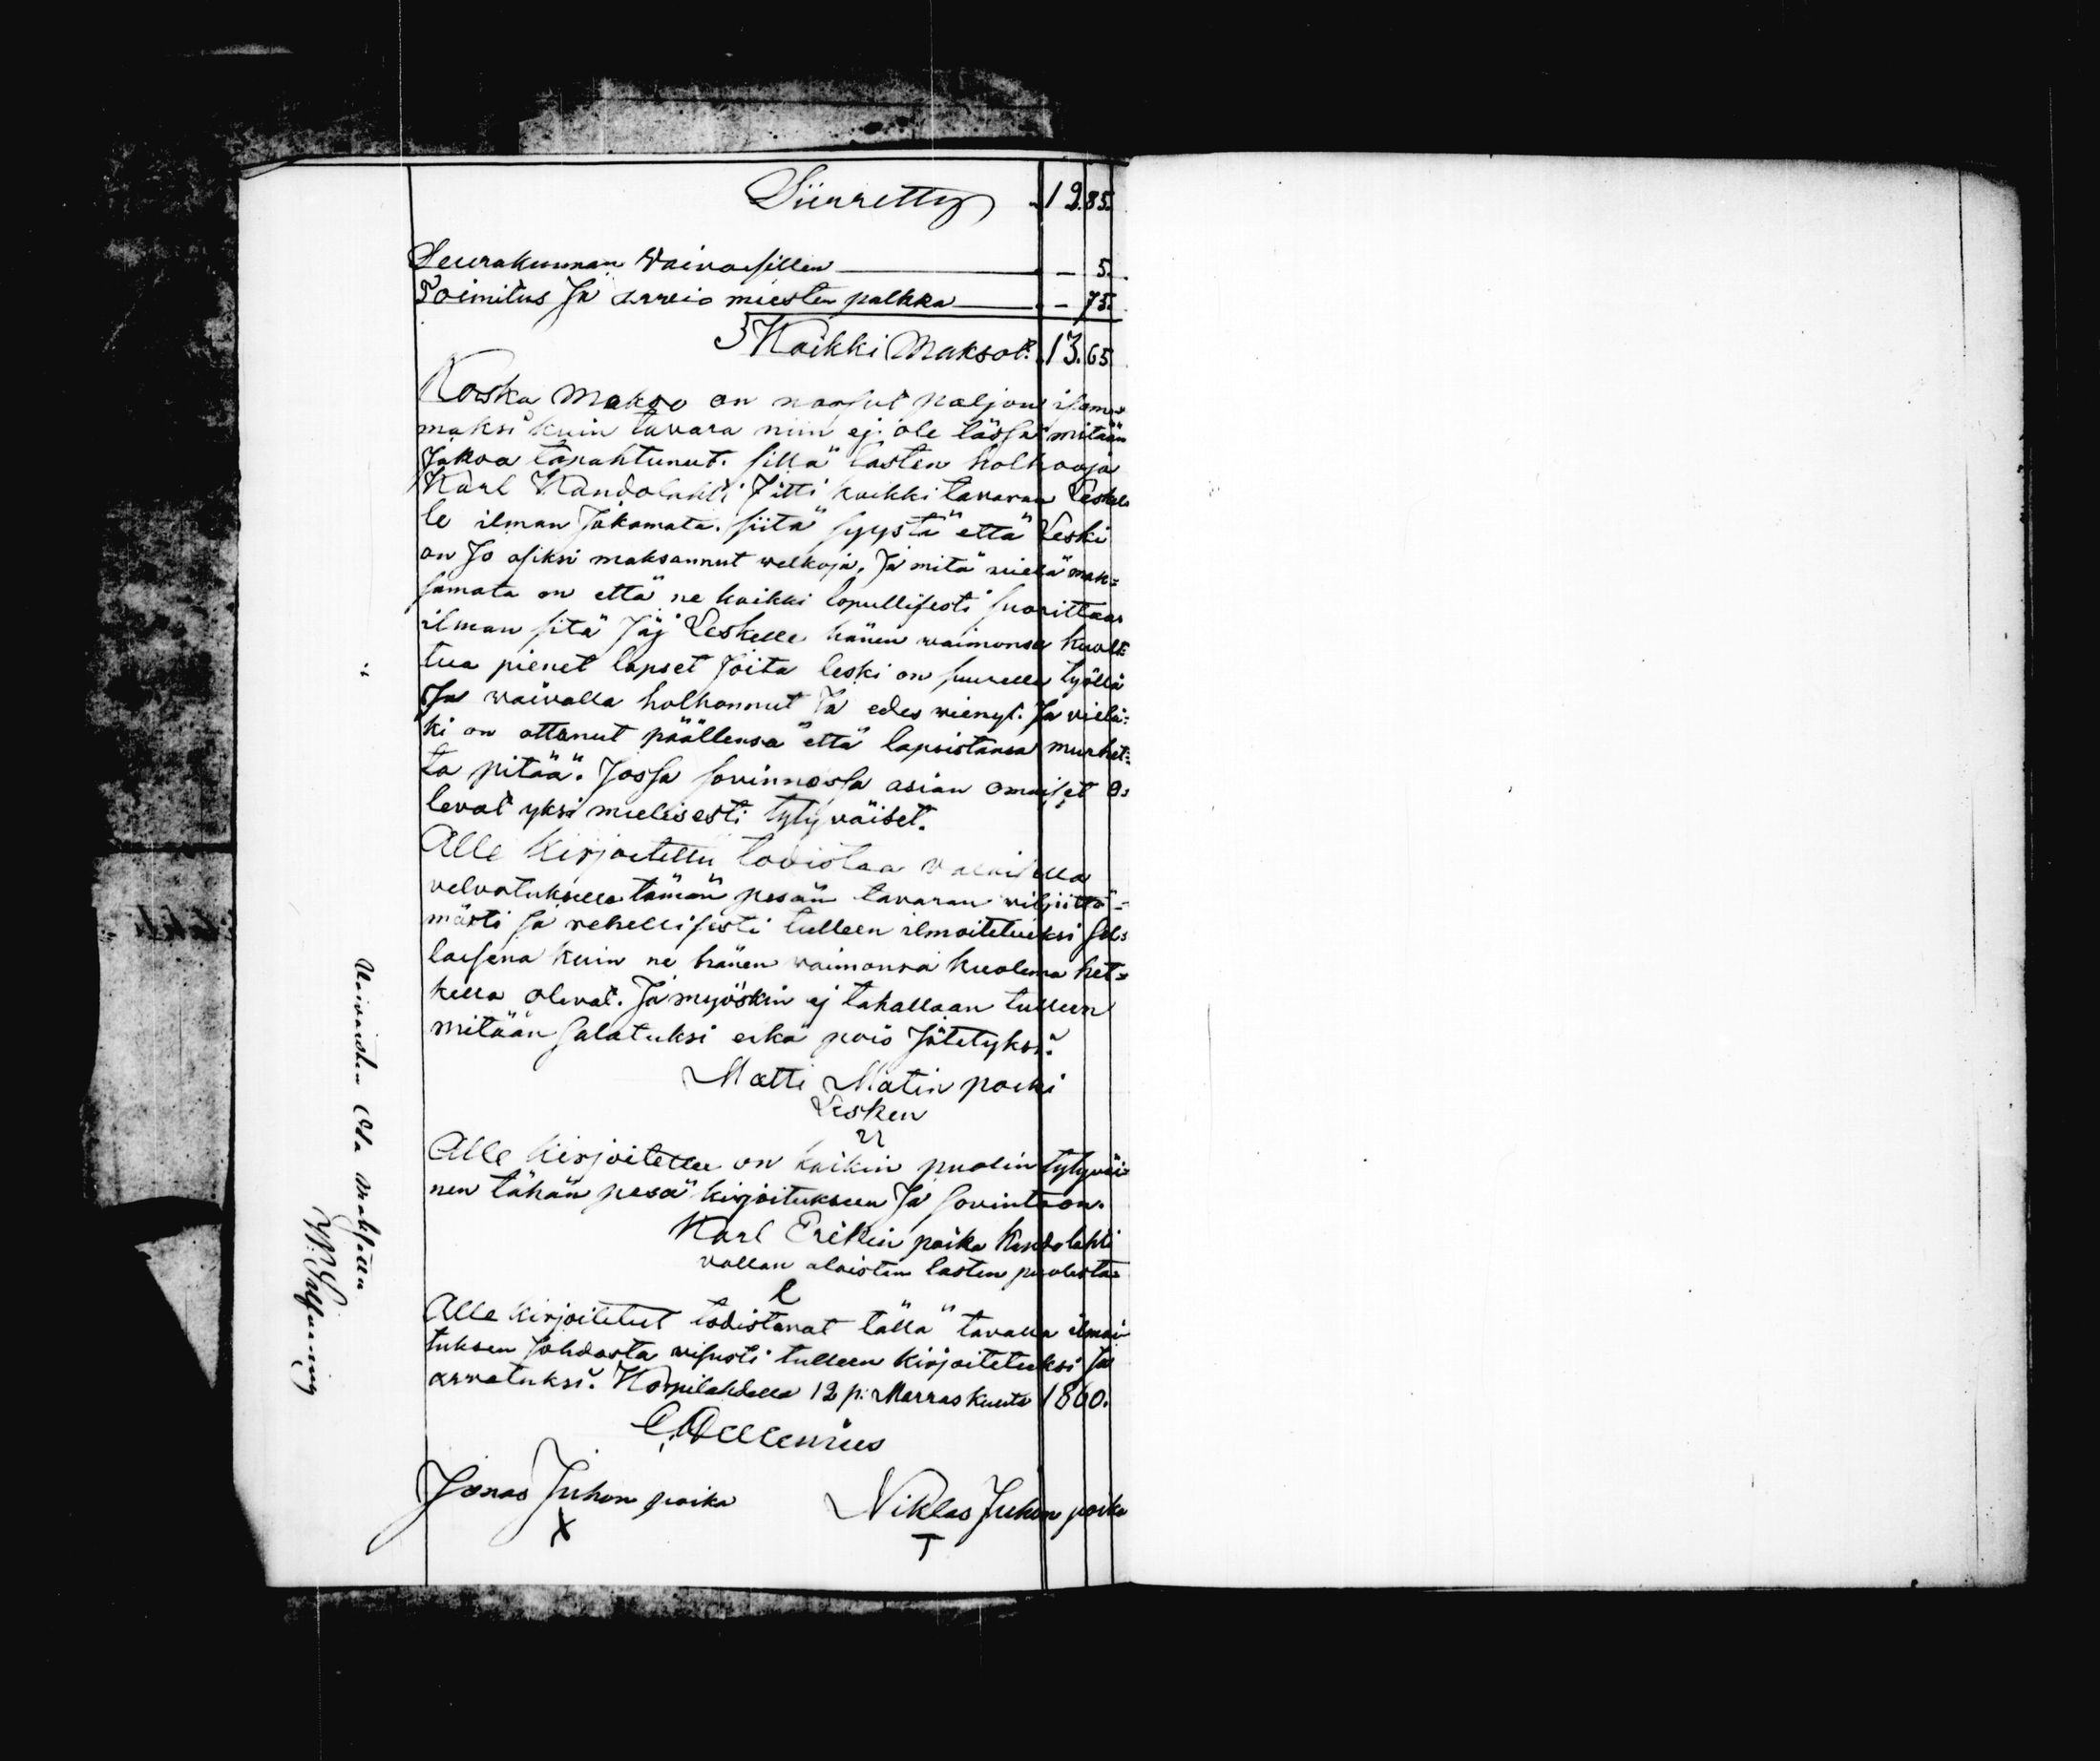 Siirretty 12.85.
Seurakunnan Vaivasillen — — 5.
Toimitus Ja arvio miesten palkka — — 75.
Kaikki Maksot. 13.65
Koska Makso on nousut paljon isom=
maksi kuin tavara niin ej ole tässä mitään
Jakoa tapahtunut. sillä lasten holhooja
Karl Kandolahti Jätti kaikki tavaran Leskel
le ilman Jakamata. siitä syystä että Leski
on Jo osiksi maksannut welkoja, Ja mitä vielä mak=
samata on että ne kaikki lopullisesti suorittaa
ilman sitä Jäj Leskelle hänen waimonsa kuol=
tua pienet lapset Joita leski on suurella työllä
Ja waivalla holhonnut Ja edes vienyt. Ja vielä=
ki on ottanut päällensä että lapsistansa murhet=
ta pitää. Jossa sovinnossa asian omaiset o=
levat yksi mielisesti tytyväiset.
Alle kirjoitettu todistaa valaisella
velvotuksella tämän pesän tavaran vilpittö=
mästi Ja rehellisesti tulleen ilmoitetuksi sel=
laisena kuin ne hänen waimonsa kuolema het=
kellä olevat. Ja myöskin ej tahallaan tulleen
mitään salatuksi eikä pois Jätetyksi.
Matti Matin poika
Lesken
Alle kirjoitettu on kaikin puolin tytyväi=
nen tähän pesä kirjoitukseen Ja sovintoon.
Karl Erikin poika Kandolahti
vallan alaisten lasten puolesta
Alle kirjoitetut todistavat tällä tavalla ilmoi
tuksen Johdosta visusti tulleen kirjoitetuksi Ja
arvatuksi. Korpilahdella 12 p: Marraskuuta 1860.
Jonas Juhon poika
X
Niklas Juhon poika
T
Vaivasten Osa Maksettu